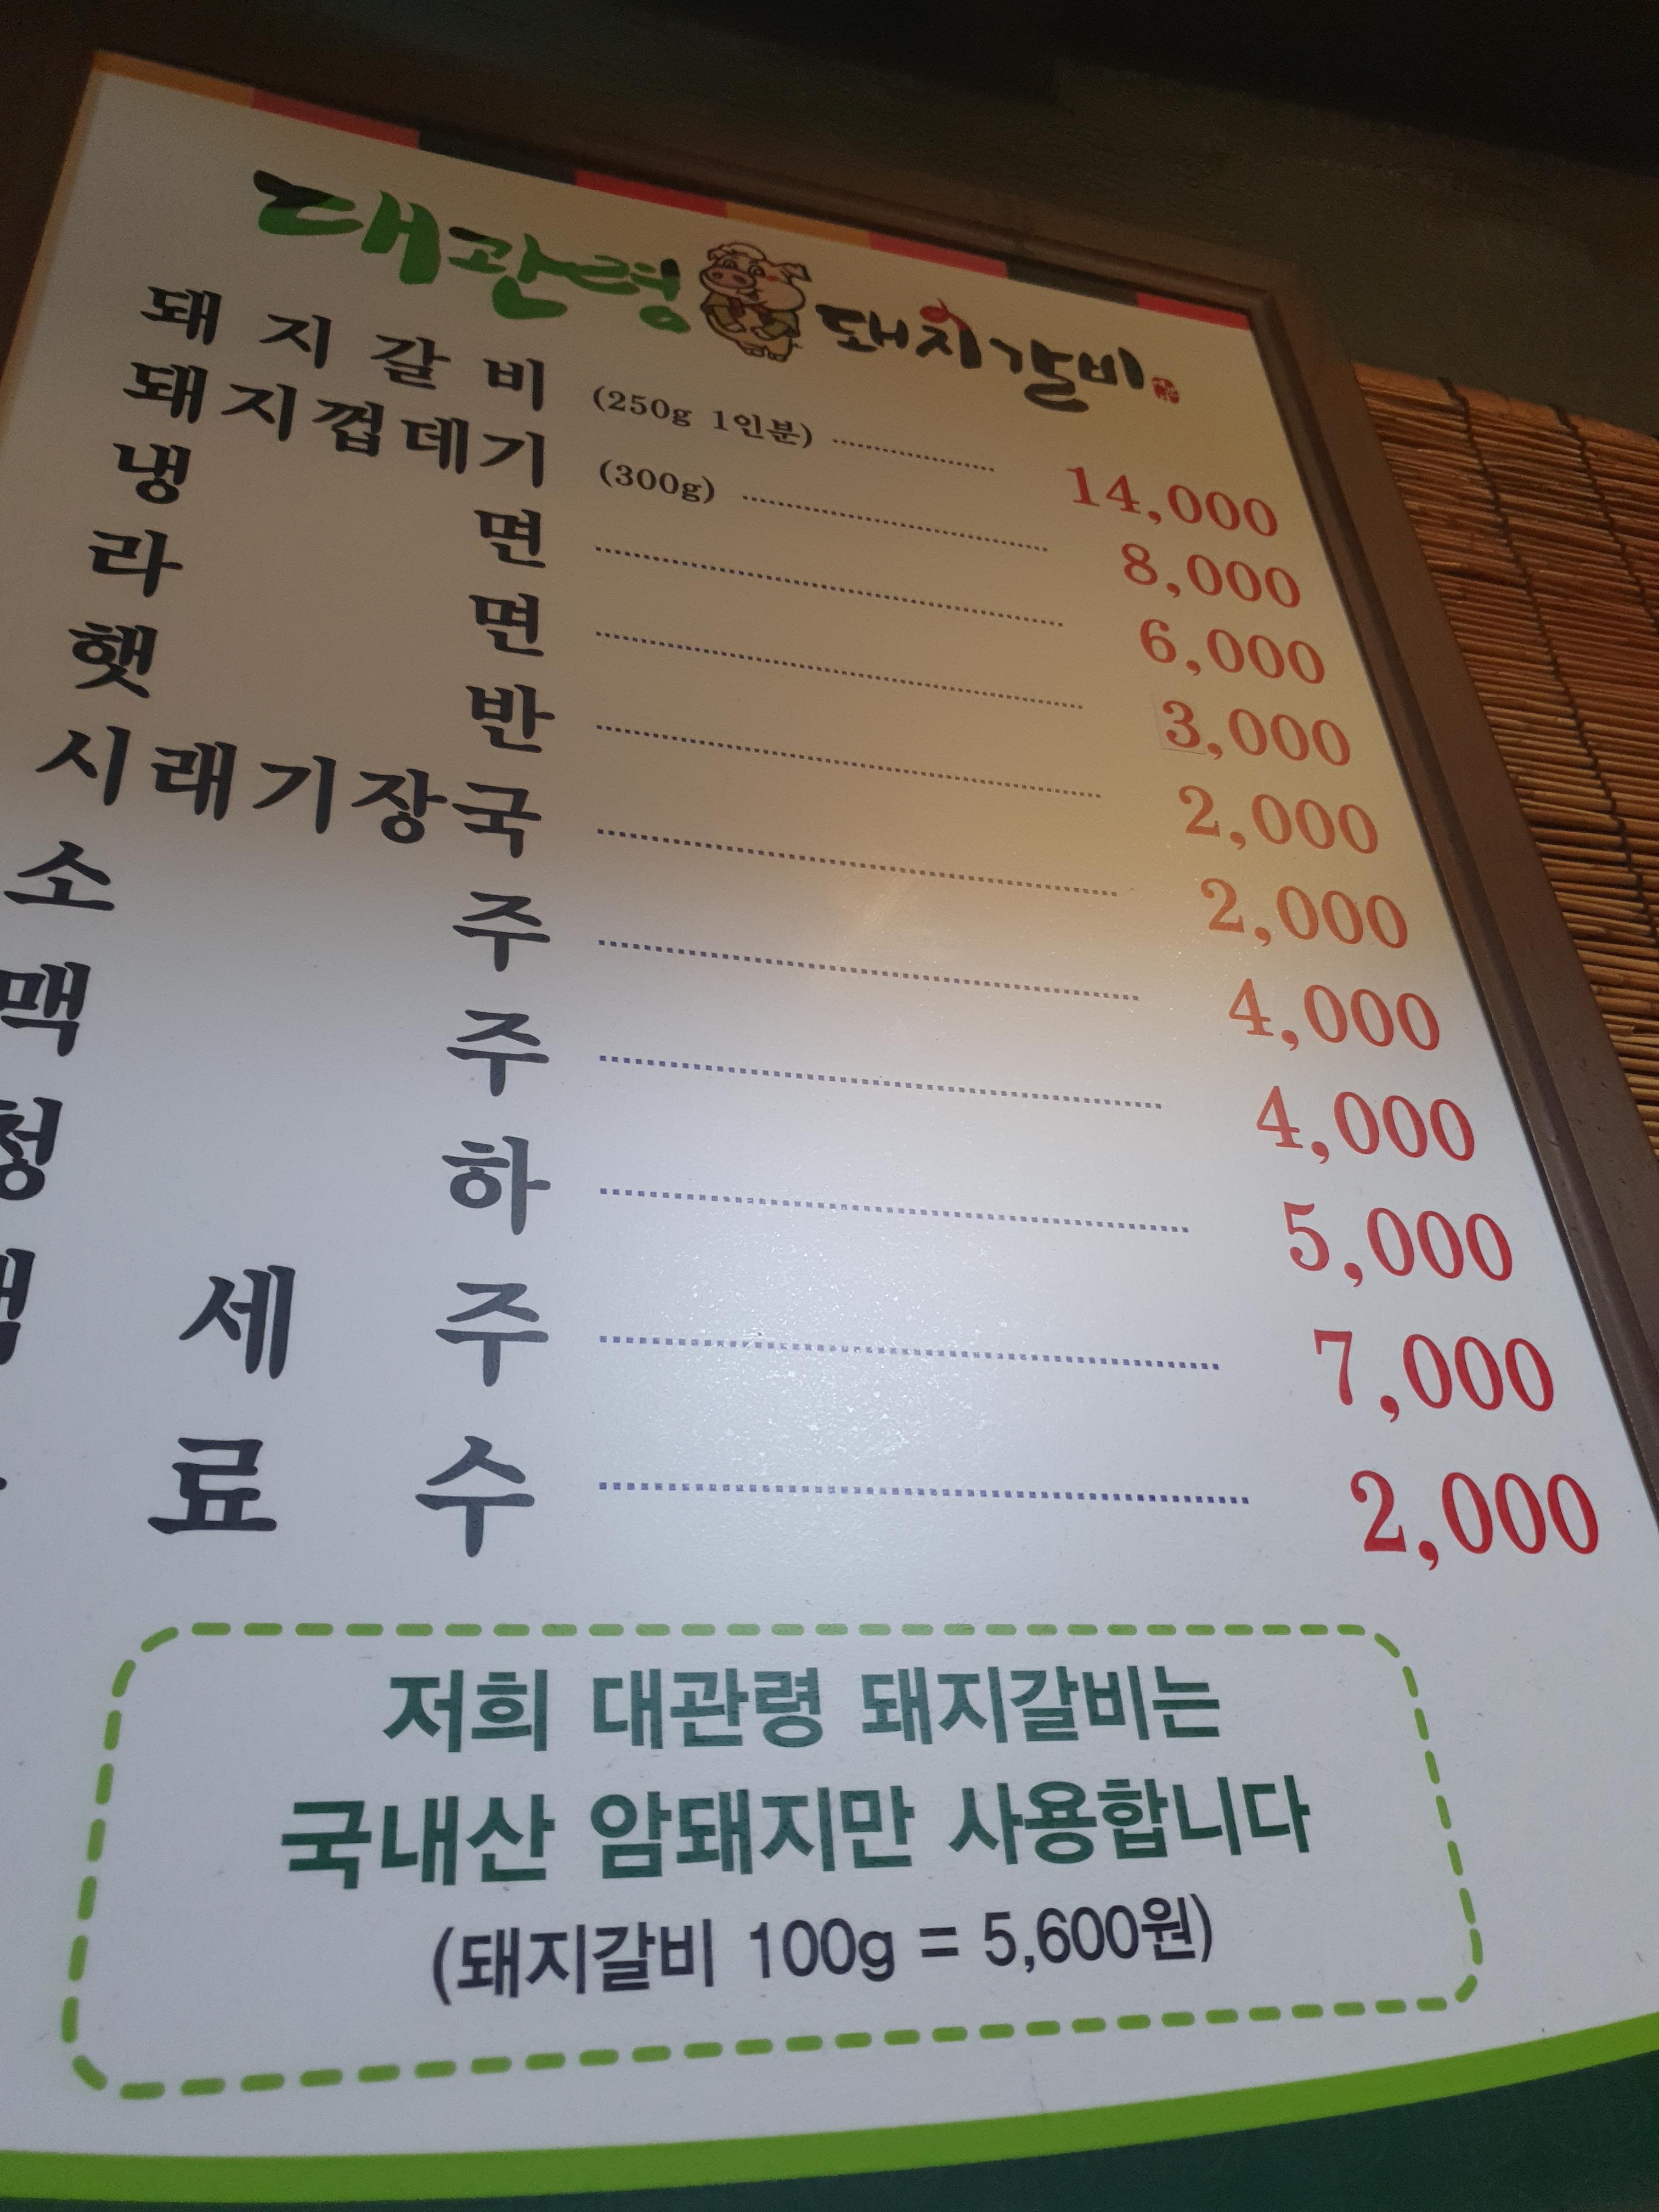 대관령 돼지갈비
돼지갈비 (250g 1인분) 14,000
돼지껍데기 (300g) 8,000
냉면 6,000
라면 3,000
햇반 2,000
시래기장국 2,000
소주 4,000
맥주 4,000
청하 5,000
세주 7,000
료수 2,000
저희 대관령 돼지갈비는
국내산 암돼지만 사용합니다
(돼지갈비 100g = 5,600원)